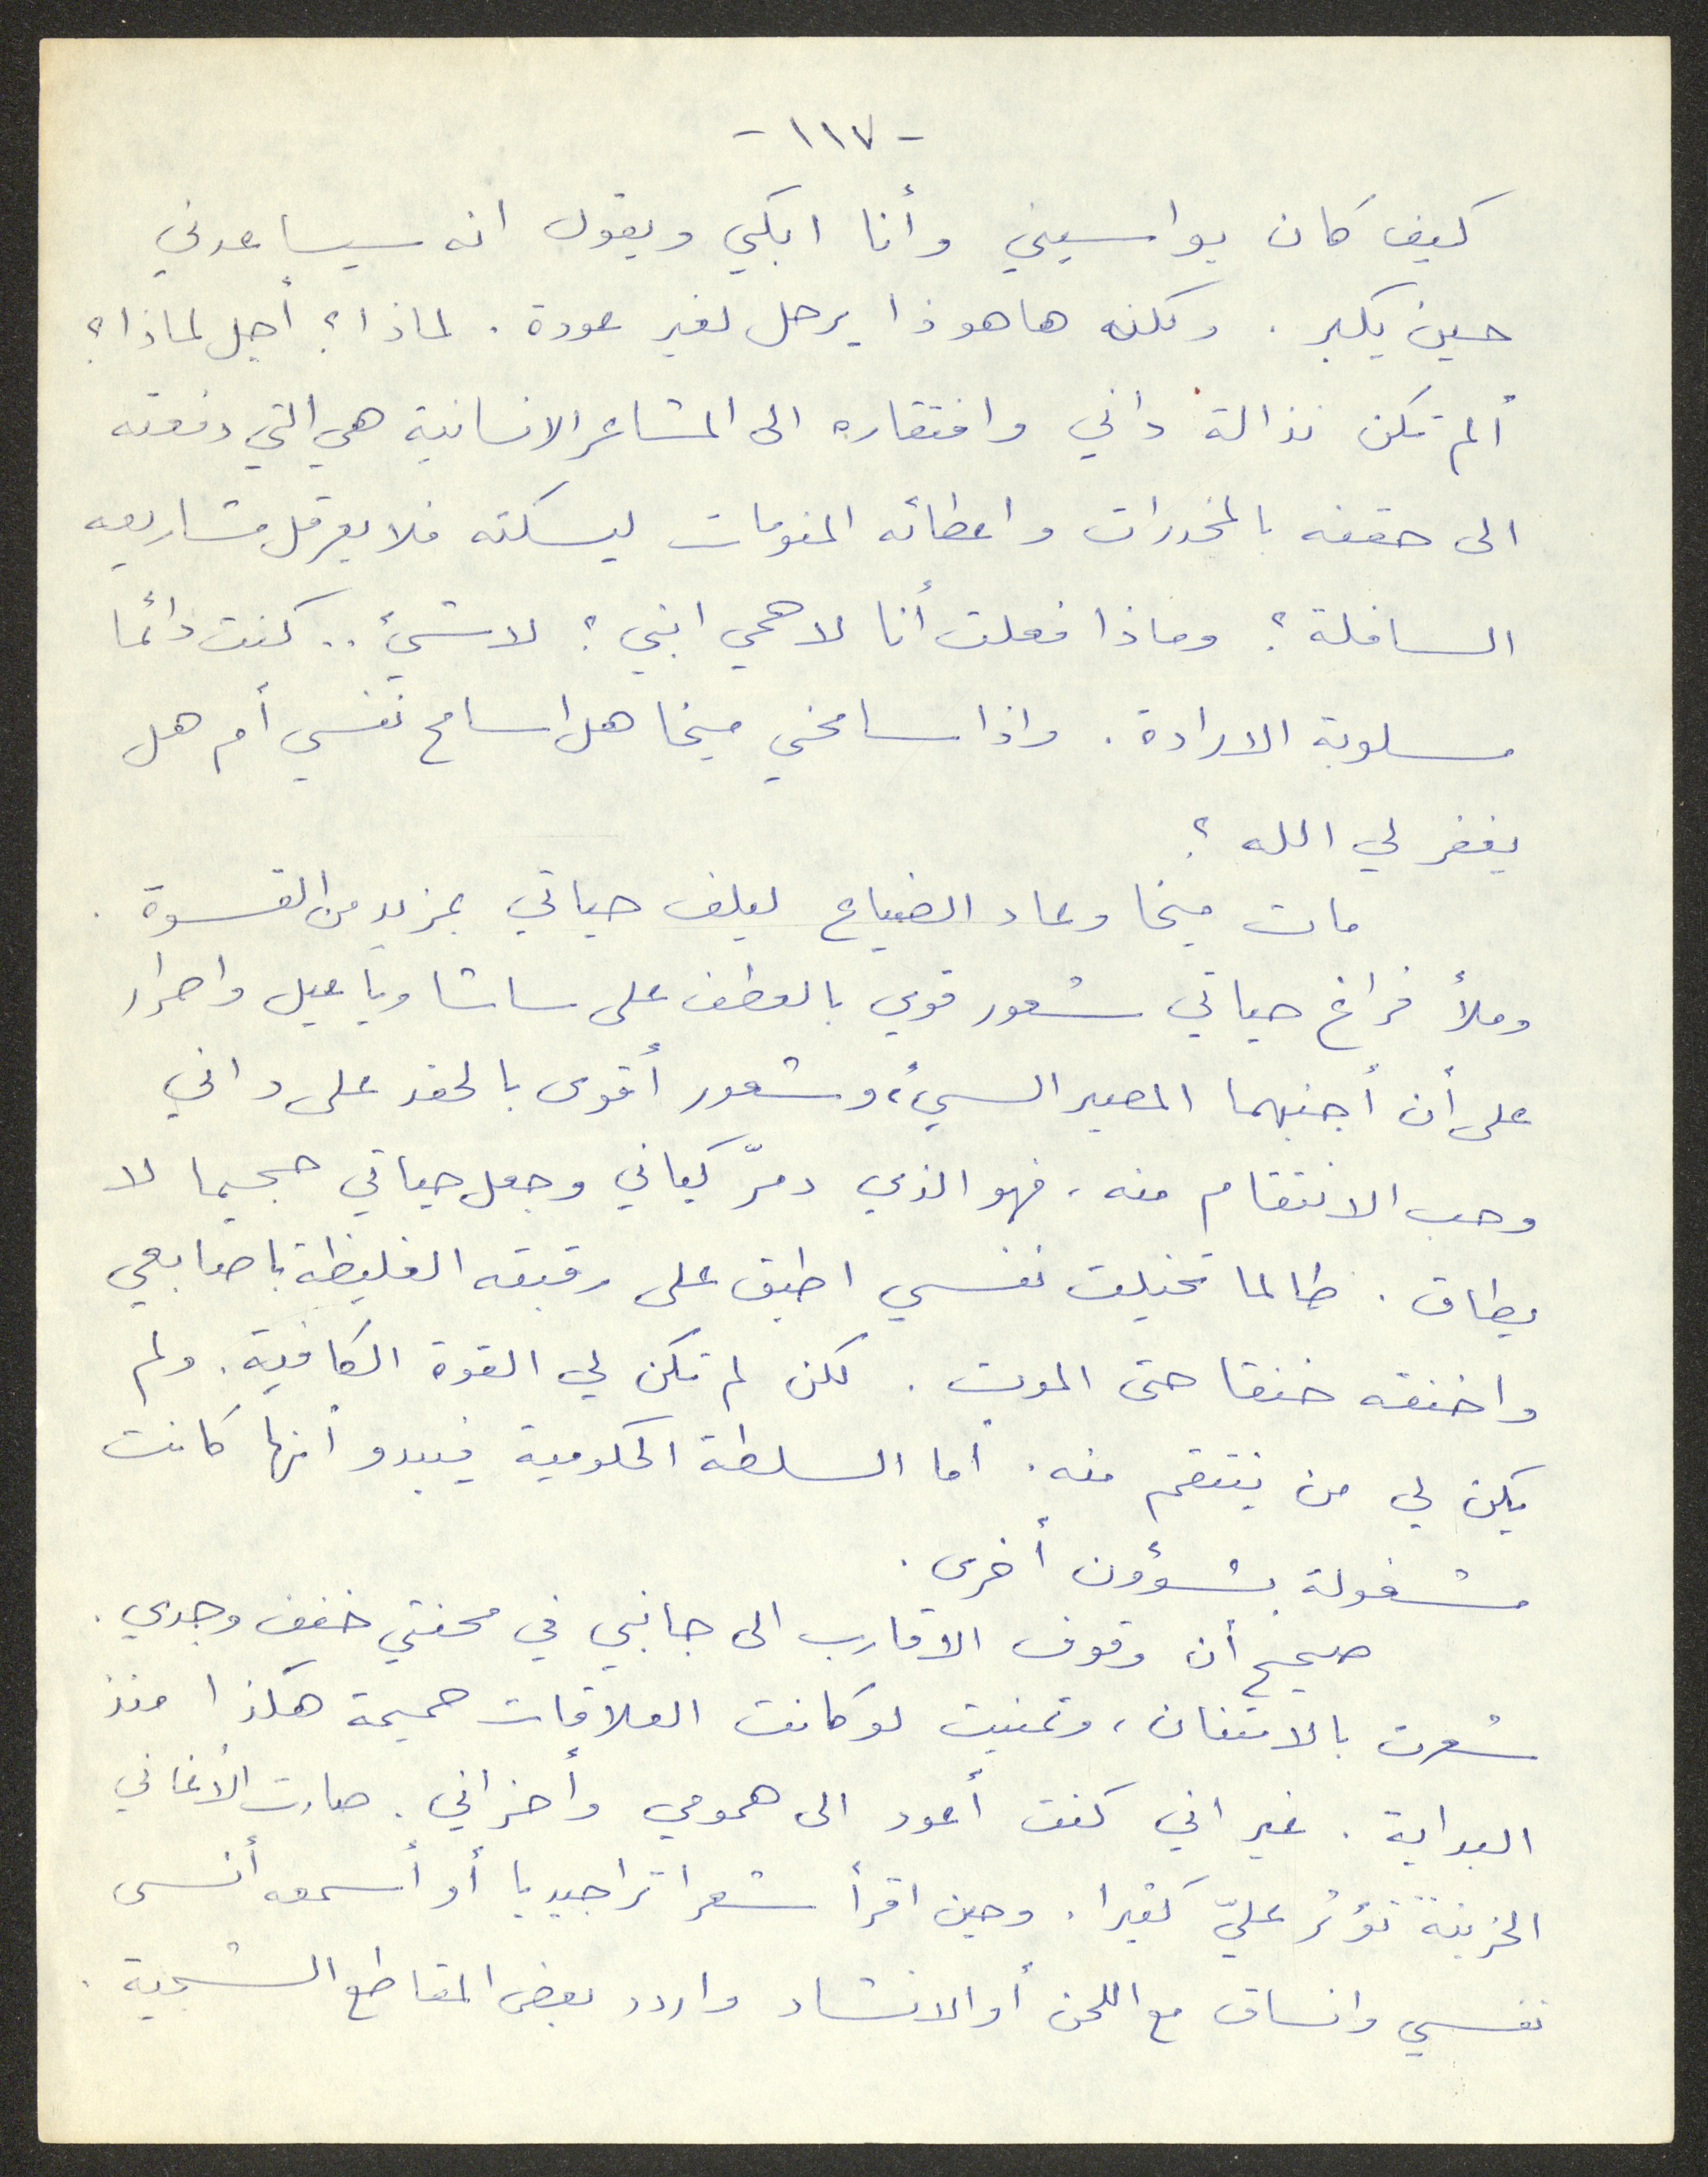 - ١١٧ -
كيف كان يواسيني وأنا ابكي ويقول انه سيساعدني
حين يكبر . ولكنه هاهو ذا يرحل لغير عودة . لماذا ؟ أجل لماذا ؟
ألم تكن نذالة داني وافتقاره الى المشاعر الانسانية هي التي دفعته
الى حقنه بالمخدرات واعطائه المنومات ليسكته فلا يعرقل مشاريعه
السافلة ؟ وماذا فعلت أنا لاحمي ابني ؟ لا شيء .. كنت دائما
مسلوبة الارادة . واذا سامحني ميخا هل اسامح نفسي أم هل
يغفر لي الله ؟
مات ميخا وعاد الضياع ليلف حياتي بمزيد من القسوة .
وملأ فراغ حياتي شعور قوي بالعطف على ساشا وياعيل واصرار
على أن أجنبهما المصير السيء، وشعور أقوى بالحقد على داني
وحب الانتقام منه ، فهو الذي دمّر كياني وجعل حياتي جحيما لا
يطاق . طالما تخيلت نفسي اطبق على رقبته الغليظة باصابعي
واخنقه خنقا حتى الموت . لكن لم تكن لي القوة الكافية . ولم
يكن لي من ينتقم منه . أما السلطة الحكومية فيبدو أنها كانت
مشغولة بشؤون أخرى .
صحيح أن وقوف الاقارب الى جانبي في محنتي خفف وجدي .
شعرت بالامتنان ، وتمنيت لو كانت العلاقات حميمة هكذا منذ
البداية . غير اني كنت أعود الى همومي وأحزاني . صارت الأغاني
الحزينة تؤثر عليّ كثيرا . وحين اقرأ شعرا تراجيديا أو أسمعه أنسى
نفسي وانساق مع اللحن أو الانشاد واردد بعض المقاطع الشجية .